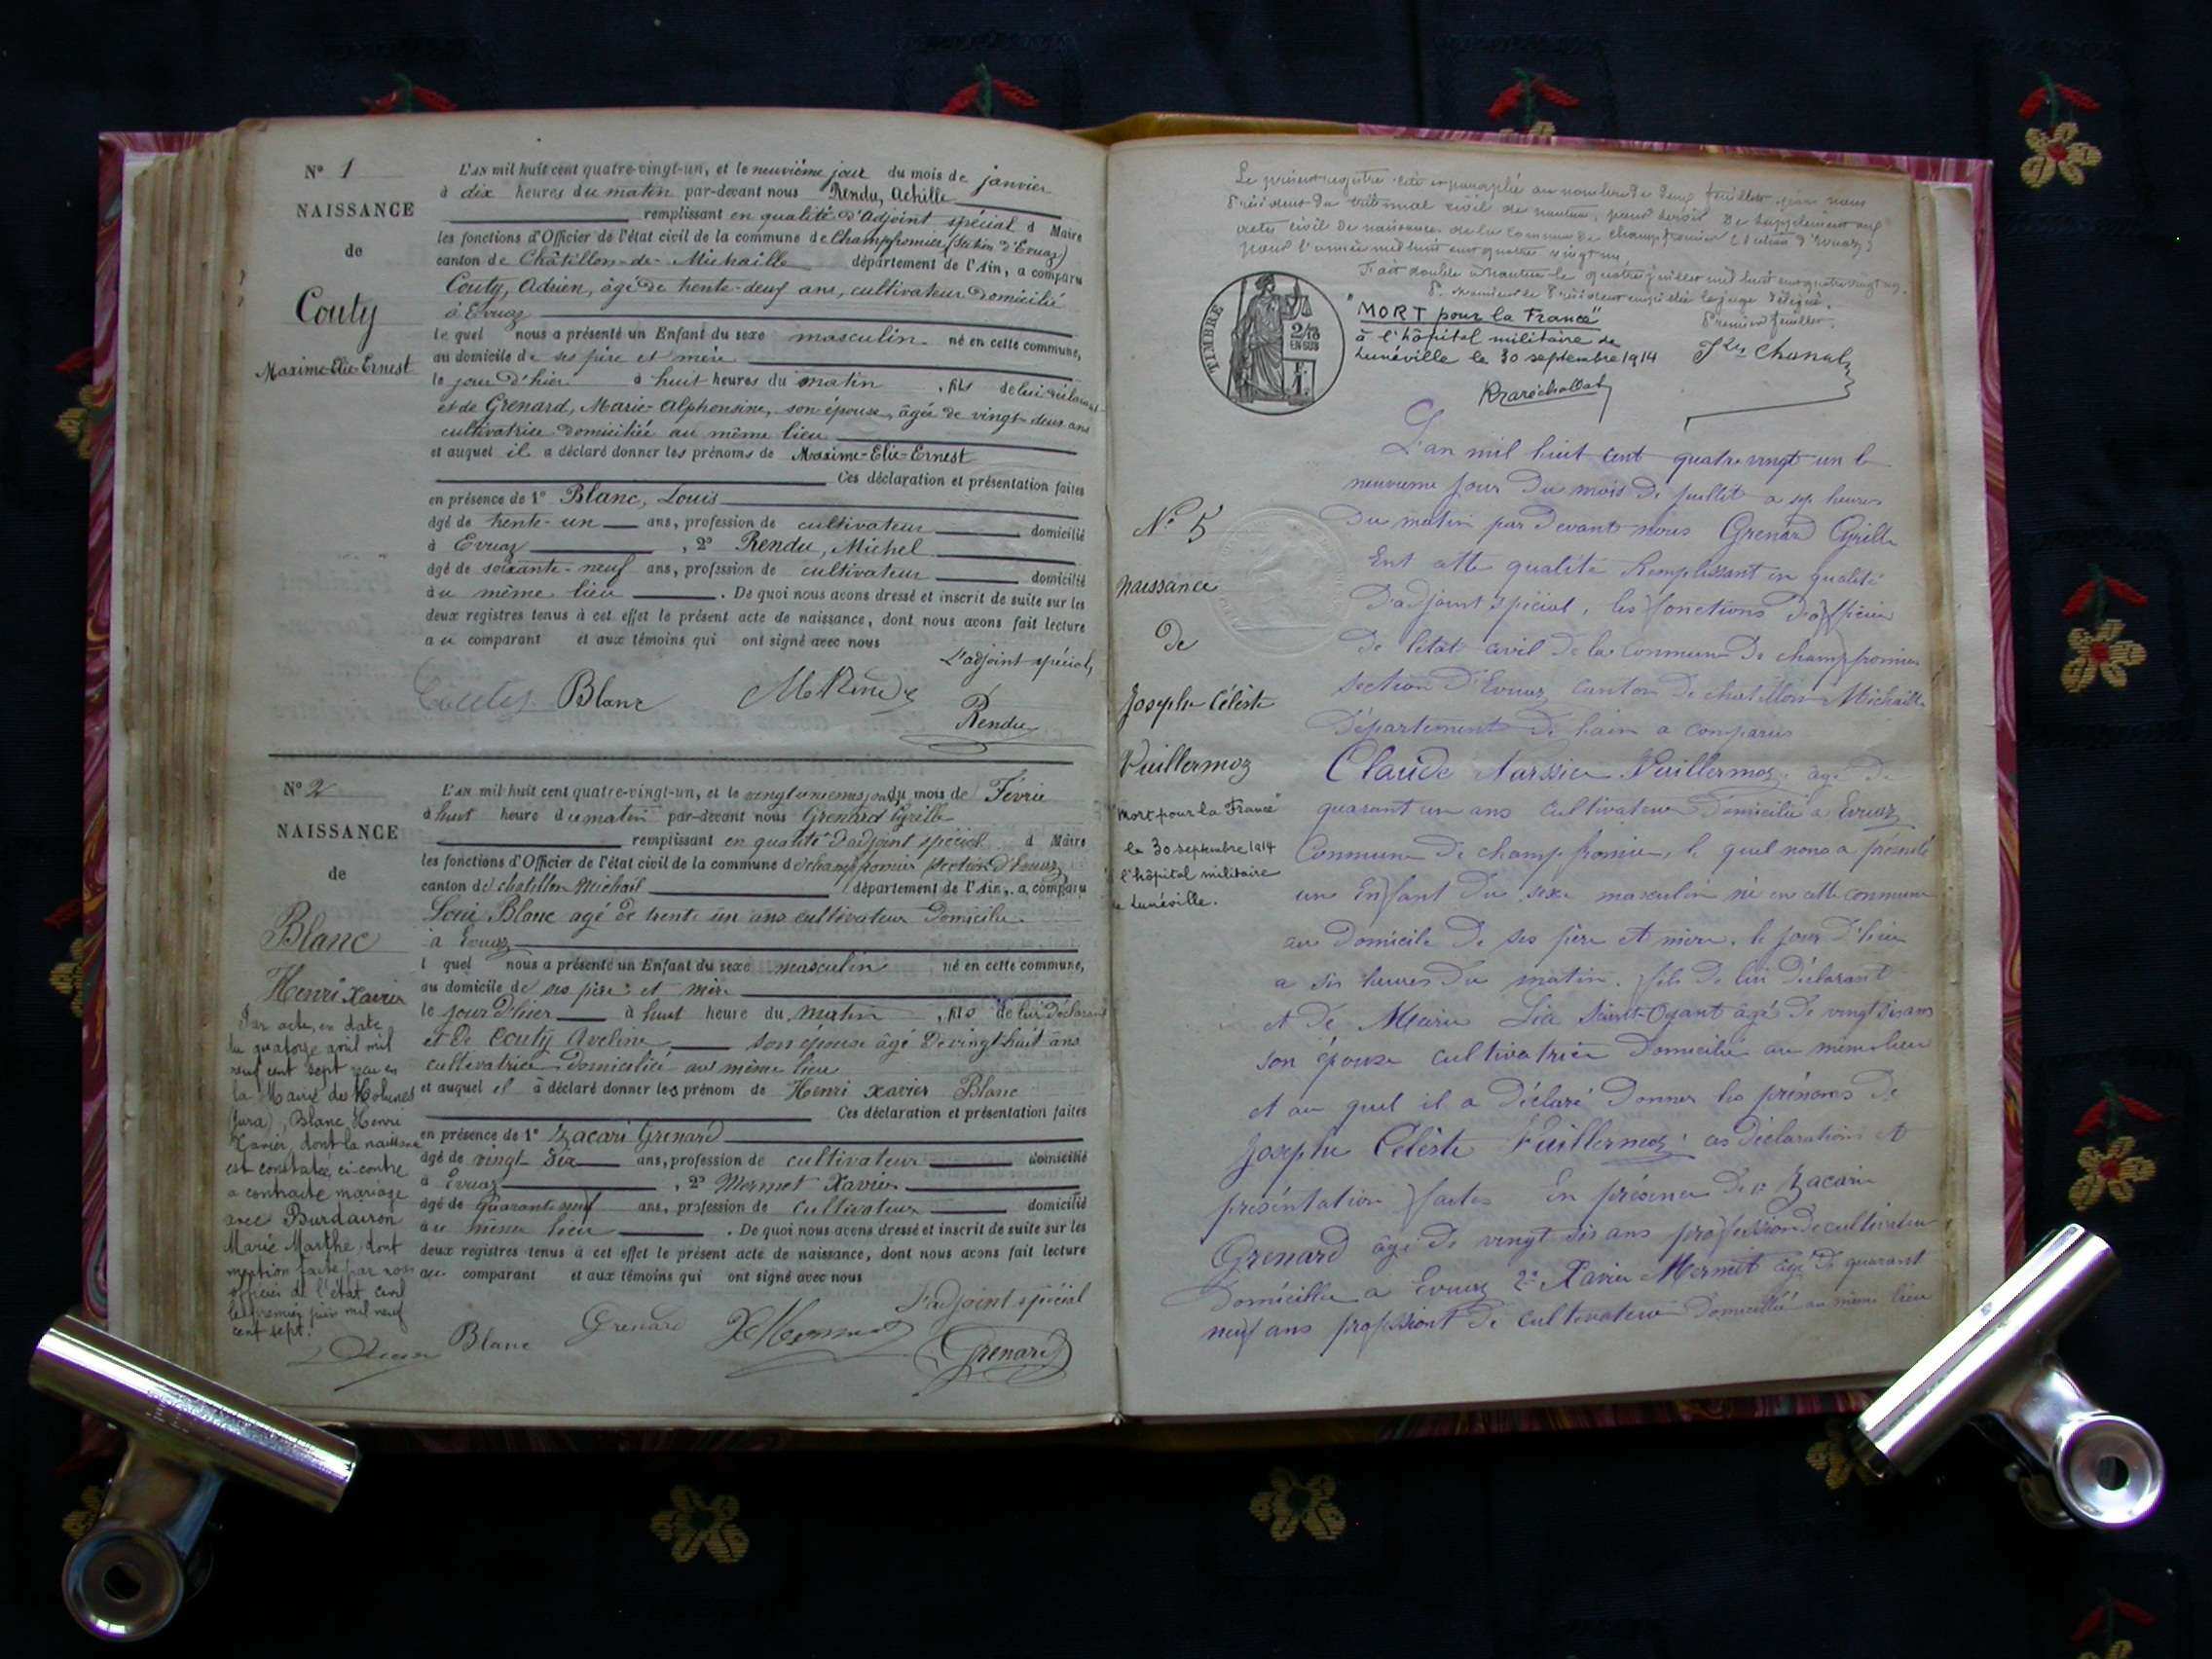 N° 1
NAISSANCE
de
Couty
Maxime-Elie-Ernest
L'AN mil huit cent quatre-vingt-un, et le neuvième jour du mois de janvier
à dix heures du matin par-devant nous Rendu, Achille
remplissant en qualité d'Adjoint spécial d Maire
les fonctions d'Officier de l'état civil de la commune de Champfromier (Section d'Evuaz)
canton de Châtillon-de-Michaille département de l'Ain, a comparu
Couty, Adrien, âgé de trente-deux ans, cultivateur domicilié
à Evuaz
le quel nous a présenté un Enfant du sexe masculin né en cette commune,
au domicile de ses père et mère
le jour d'hier à huit heures du matin, fils de lui déclarant
et de Grenard, Marie-Alphonsine, son épouse, âgée de vingt-deux ans
cultivatrice domiciliée au même lieu
et auquel il a déclaré donner les prénoms de Maxime-Elie-Ernest
Ces déclaration et présentation faites
en présence de 1° Blanc, Louis
âgé de trente-un ans, profession de cultivateur domicilié
à Evuaz, 2° Rendu, Michel
âgé de soixante-neuf ans, profession de cultivateur domicilié
au même lieu. De quoi nous avons dressé et inscrit de suite sur les
deux registres tenus à cet effet le présent acte de naissance, dont nous avons fait lecture
au comparant et aux témoins qui ont signé avec nous
L'adjoint spécial,
Couty Blanc M Rendu
Rendu
N° 2
NAISSANCE
de
Blanc
Henri Xavier
Par acte, en date
du quatorze avril mil
neuf cent sept reçu en
la Mairie des Molunes
(Jura), Blanc Henri
Xavier, dont la naissance
est constatée ci-contre
a contracté mariage
avec Burdairon
Marie Marthe, dont
mention faite par nous
officier de l'état civil
le premier juin mil neuf
cent sept.
L'AN mil huit cent quatre-vingt-un, et le vingtunieme jour du mois de Févrie
à huit heure du matin par-devant nous Grenard Cyrille
remplissant en qualité d'adjoint spécial d Maire
les fonctions d'Officier de l'état civil de la commune d champfromier section d'Evuaz
canton de chatillon Michail département de l'Ain, a comparu
Loui Blanc agé de trente un ans cultivateur Domicilie
a Evuaz
l quel nous a présenté un Enfant du sexe masculin né en cette commune,
au domicile de ses pére et mère
le jour D'hier à huit heure du matin, fils de lui Déclarant
et De Couty Aveline son épouse âgé De vingt huit ans
cultivatrice domiciliée au même lieu
et auquel il à déclaré donner les prénom de Henri Xavier Blanc
Ces déclaration et présentation faites
en présence de 1° Zacari Grenard
âgé de vingt six ans, profession de cultivateur domicilié
à Evuaz, 2° Mermet Xavier
âgé de Quarante neuf ans, profession de Cultivateur domicilié
au même lieu. De quoi nous avons dressé et inscrit de suite sur les
deux registres tenus à cet effet le présent acte de naissance, dont nous avons fait lecture
au comparant et aux témoins qui ont signé avec nous
L'adjoint spécial
Blanc Grenard X Mermet
Grenard
Le présent registre coté et paraphé au nombre de deux feuillets par nous
Président du tribunal civil de nantua, pour servir de supplément aux
actes civil de naissances de la Commune de champfromier (section d'Evuaz)
pour l'année mil huit cent quatre vingt un
Fait double à Nantua le quatre juillet mil huit cent quatre vingt un.
P. monsieur le Président empêché le juge délégué.
Premier feuillet.
TIMBRE
2/10
EN SUS
"MORT pour la France"
à l'hôpital militaire de
Lunéville le 30 septembre 1914
N° 5
Naissance
de
Joseph Céleste
Vuillermoz
"Mort pour la France"
le 30 septembre 1914
à l'hôpital militaire
de Lunéville.
L'an mil huit cent quatre vingt un le
neuvieme jour Du mois De juillet a six heures
Du matin par Devant nous Grenard Cyrille
Ent cette qualité Remplissant en qualité
D'adjoint spécial, les fonctions D'officier
De l'état civil De la Commune De champfromier
section D'Evuaz Canton De chatillon Michaille
Département De l'ain a comparus
Claude Narssice Vuillermoz, âgé De
quarant un ans Cultivateur Domicilié a Evuaz
Commune De champfromier, le quel nous a présenté
un Enfant Du sexe masculin né en cette commune
au Domicile De ses père et mère, le jour D'hier
a six heures Du matin, fils De lui Déclarant
et De Marie Lia Saint-Oyant âgé De vingt six ans
son épouse cultivatrice Domicilié au même lieu
et au quel il a Déclaré Donner les prénoms De
Joseph Céleste Vuillermoz; ces Déclarations et
présentation faites En présence De 1° Zacarie
Grenard âgé De vingt six ans profession de cultivateur
Domicilie a Evuaz 2° Xavier Mermet âgé De quarant
neuf ans professiont De Cultivateur Domicilié au même lieu